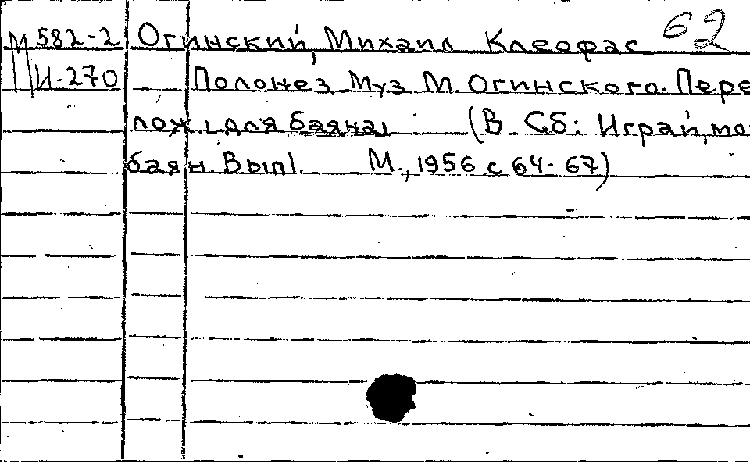 М 582-2 Огинский, Михаил Клеофас 62
И-270 Полонез Муз М. Огинского. Пере
лож. для баяна. (В Сб: Играй, мо
баян. Вып1. М., 1956 с 64-67)